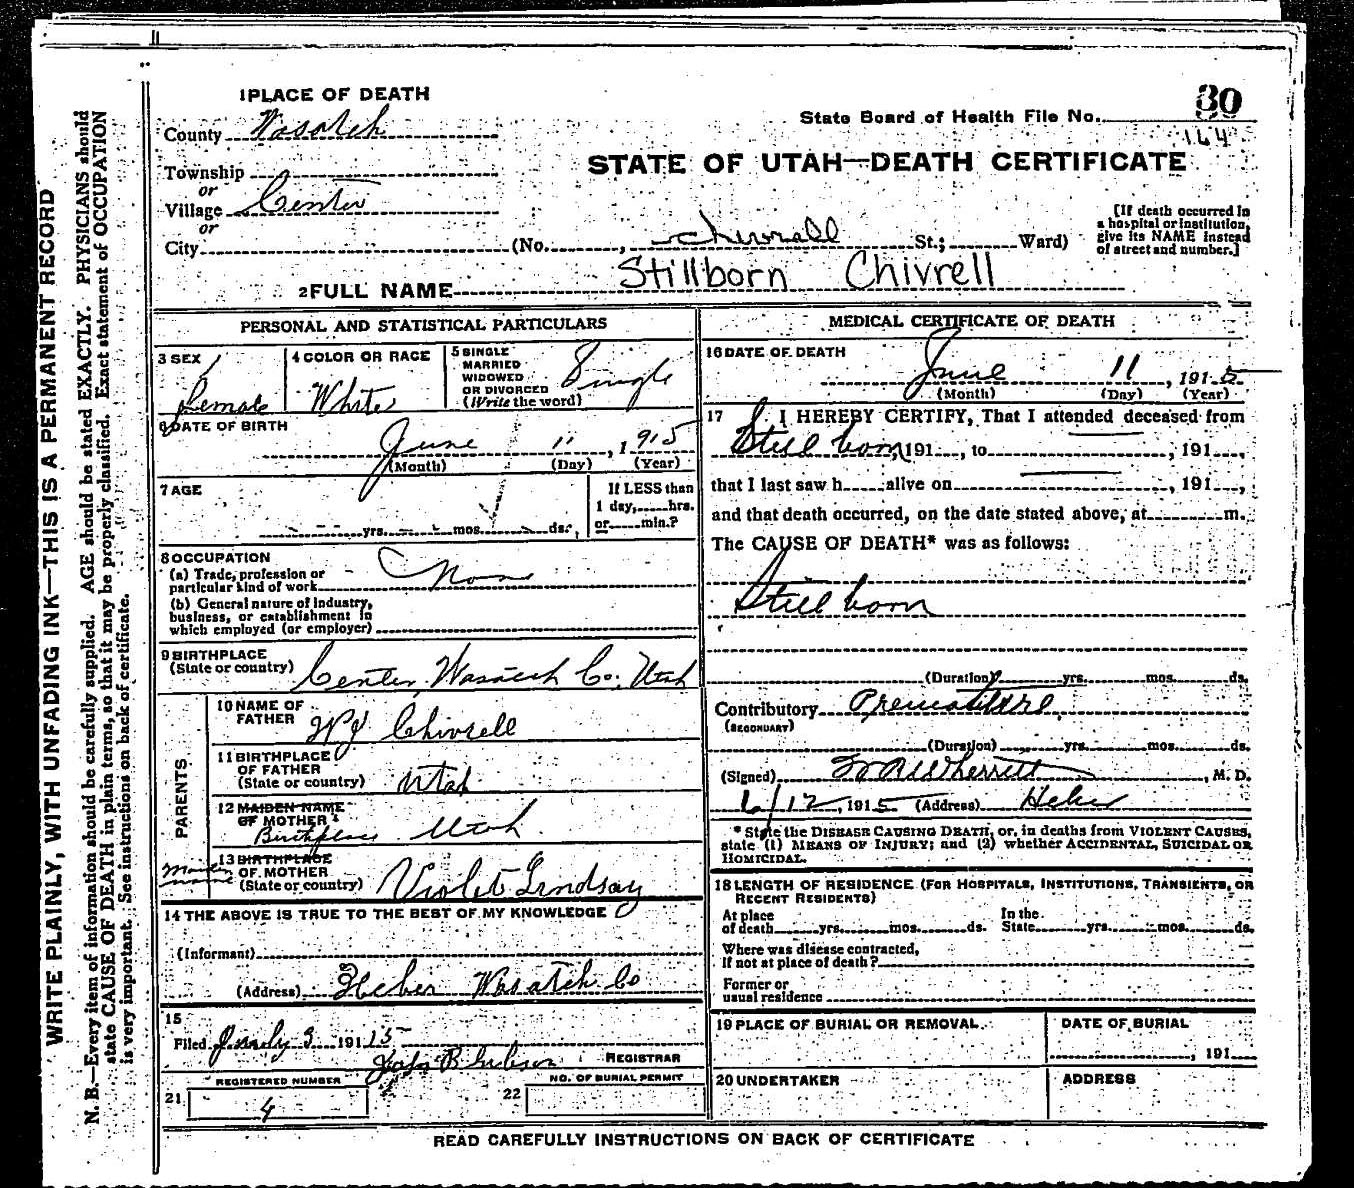 WRITE PLAINLY, WITH UNFADING INK—THIS IS A PERMANENT RECORD
N. B.—Every item of information should be carefully supplied. AGE should be stated EXACTLY. PHYSICIANS should
state CAUSE OF DEATH in plain terms, so that it may be properly classified. Exact statement of OCCUPATION
is very important. See instructions on back of certificate.
1 PLACE OF DEATH
County Wasatch
Township
or
Village Center
or
City (No. , Chivrall St.; Ward)
State Board of Health File No. 30
164
STATE OF UTAH—DEATH CERTIFICATE
[If death occurred in
a hospital or institution,
give its NAME instead
of street and number.]
2 FULL NAME Stillborn Chivrell
PERSONAL AND STATISTICAL PARTICULARS
3 SEX Female
4 COLOR OR RACE White
5 SINGLE
MARRIED
WIDOWED
OR DIVORCED
(Write the word) Single
6 DATE OF BIRTH
June 11, 1915
(Month) (Day) (Year)
7 AGE
yrs. mos. ds.
If LESS than
1 day, hrs.
or min.?
8 OCCUPATION
(a) Trade, profession or
particular kind of work None
(b) General nature of industry,
business, or establishment in
which employed (or employer)
9 BIRTHPLACE
(State or country) Center, Wasatch Co. Utah
PARENTS
10 NAME OF
FATHER WJ Chivrell
11 BIRTHPLACE
OF FATHER
(State or country) Utah
12 MAIDEN NAME
OF MOTHER
Birthplace Utah
13 BIRTHPLACE
Maiden name
OF MOTHER
(State or country) Violet Lindsay
14 THE ABOVE IS TRUE TO THE BEST OF MY KNOWLEDGE
(Informant)
(Address) Heber Wasatch Co
15
Filed July 3 1915
REGISTRAR
REGISTERED NUMBER
21 4
NO. OF BURIAL PERMIT
22
MEDICAL CERTIFICATE OF DEATH
16 DATE OF DEATH
June 11, 1915
(Month) (Day) (Year)
17 I HEREBY CERTIFY, That I attended deceased from
Still born, 191 , to , 191 ,
that I last saw h alive on , 191 ,
and that death occurred, on the date stated above, at m.
The CAUSE OF DEATH* was as follows:
Still born
(Duration) yrs. mos. ds.
Contributory Premature
(SECONDARY)
(Duration) yrs. mos. ds.
(Signed) Wherritt, M. D.
6/12, 1915 (Address) Heber
* State the DISEASE CAUSING DEATH, or, in deaths from VIOLENT CAUSES,
state (1) MEANS OF INJURY; and (2) whether ACCIDENTAL, SUICIDAL OR
HOMICIDAL.
18 LENGTH OF RESIDENCE (FOR HOSPITALS, INSTITUTIONS, TRANSIENTS, OR
RECENT RESIDENTS)
At place In the
of death yrs. mos. ds. State yrs. mos. ds.
Where was disease contracted,
If not at place of death?
Former or
usual residence
19 PLACE OF BURIAL OR REMOVAL
DATE OF BURIAL
, 191
20 UNDERTAKER
ADDRESS
READ CAREFULLY INSTRUCTIONS ON BACK OF CERTIFICATE